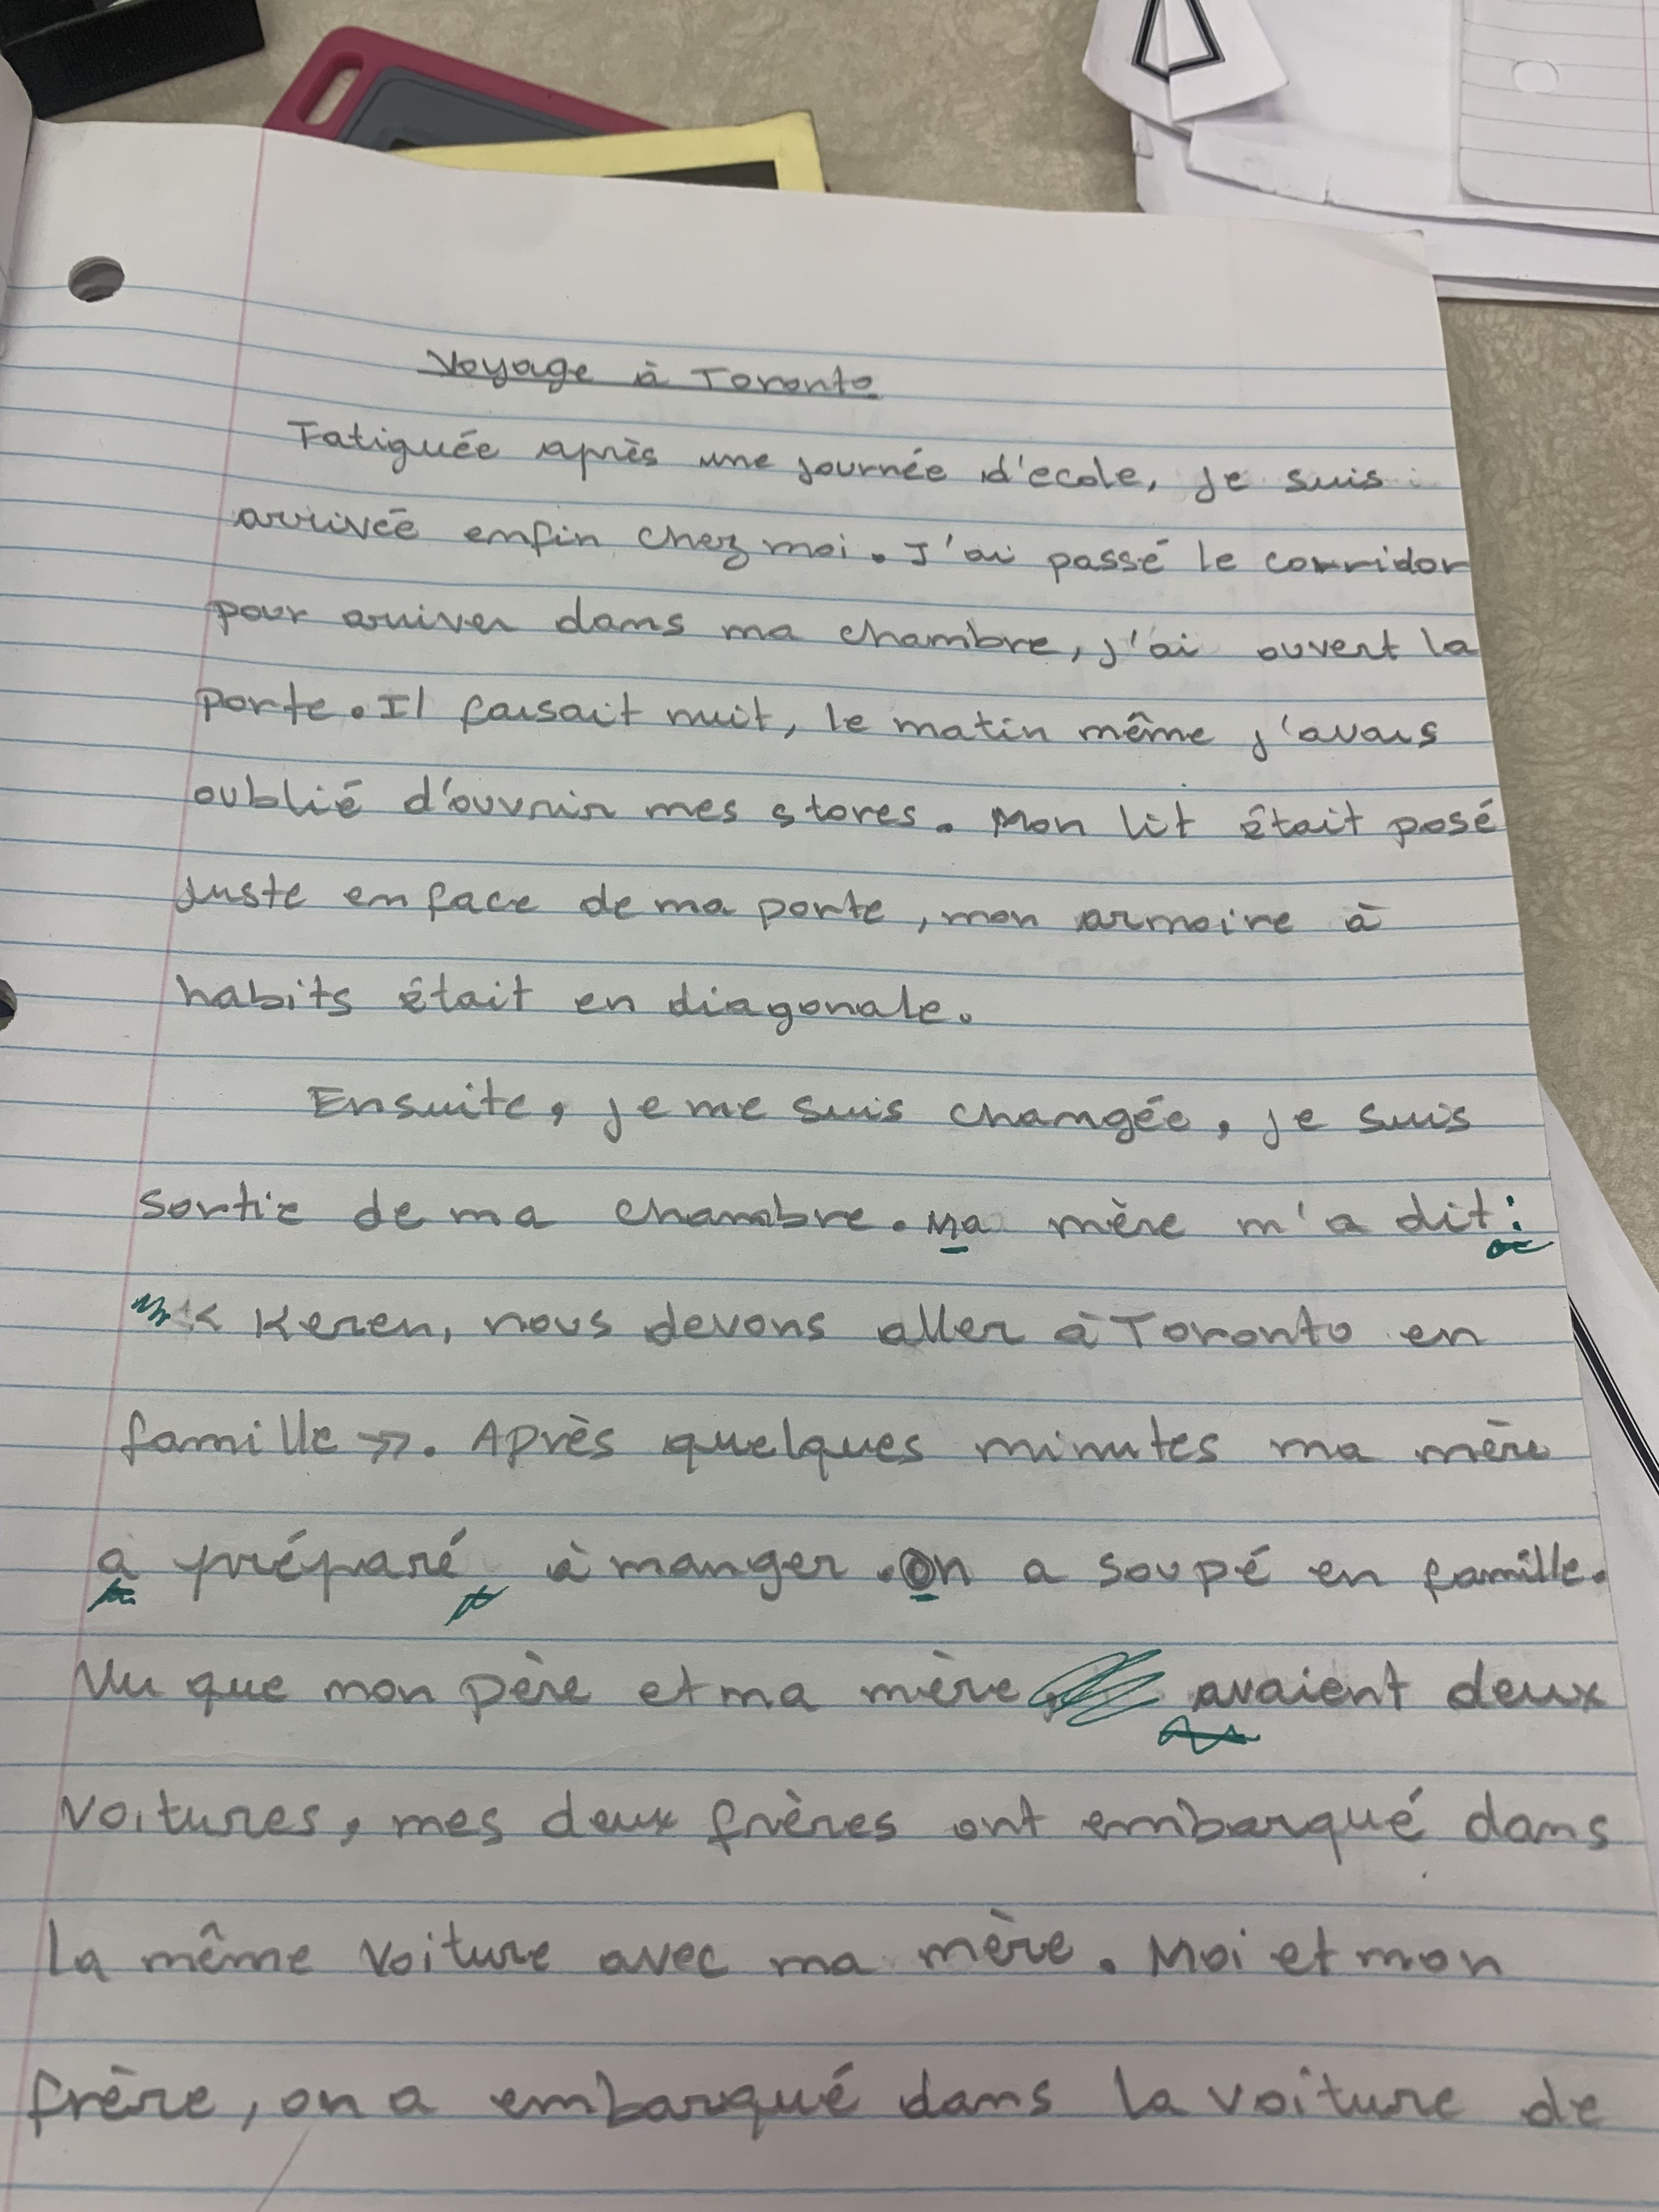 Voyage à Toronto
Fatiguée après une journée d'ecole, je suis
arrivée enfin chez moi. J'ai passé le corridor
pour arriver dans ma chambre, j'ai ouvert la
porte. Il faisait nuit, le matin même j'avais
oublié d'ouvrir mes stores. Mon lit était posé
juste en face de ma porte, mon armoire à
habits était en diagonale.
Ensuite, je me suis changée, je suis
sortie de ma chambre. Ma mère m'a dit :
<< Keren, nous devons aller à Toronto en
famille >>. Après quelques minutes ma mère
a préparé à manger. On a soupé en famille.
Vu que mon père et ma mère avaient deux
voitures, mes deux frères ont embarqué dans
la même voiture avec ma mère. Moi et mon
frère, on a embarqué dans la voiture de